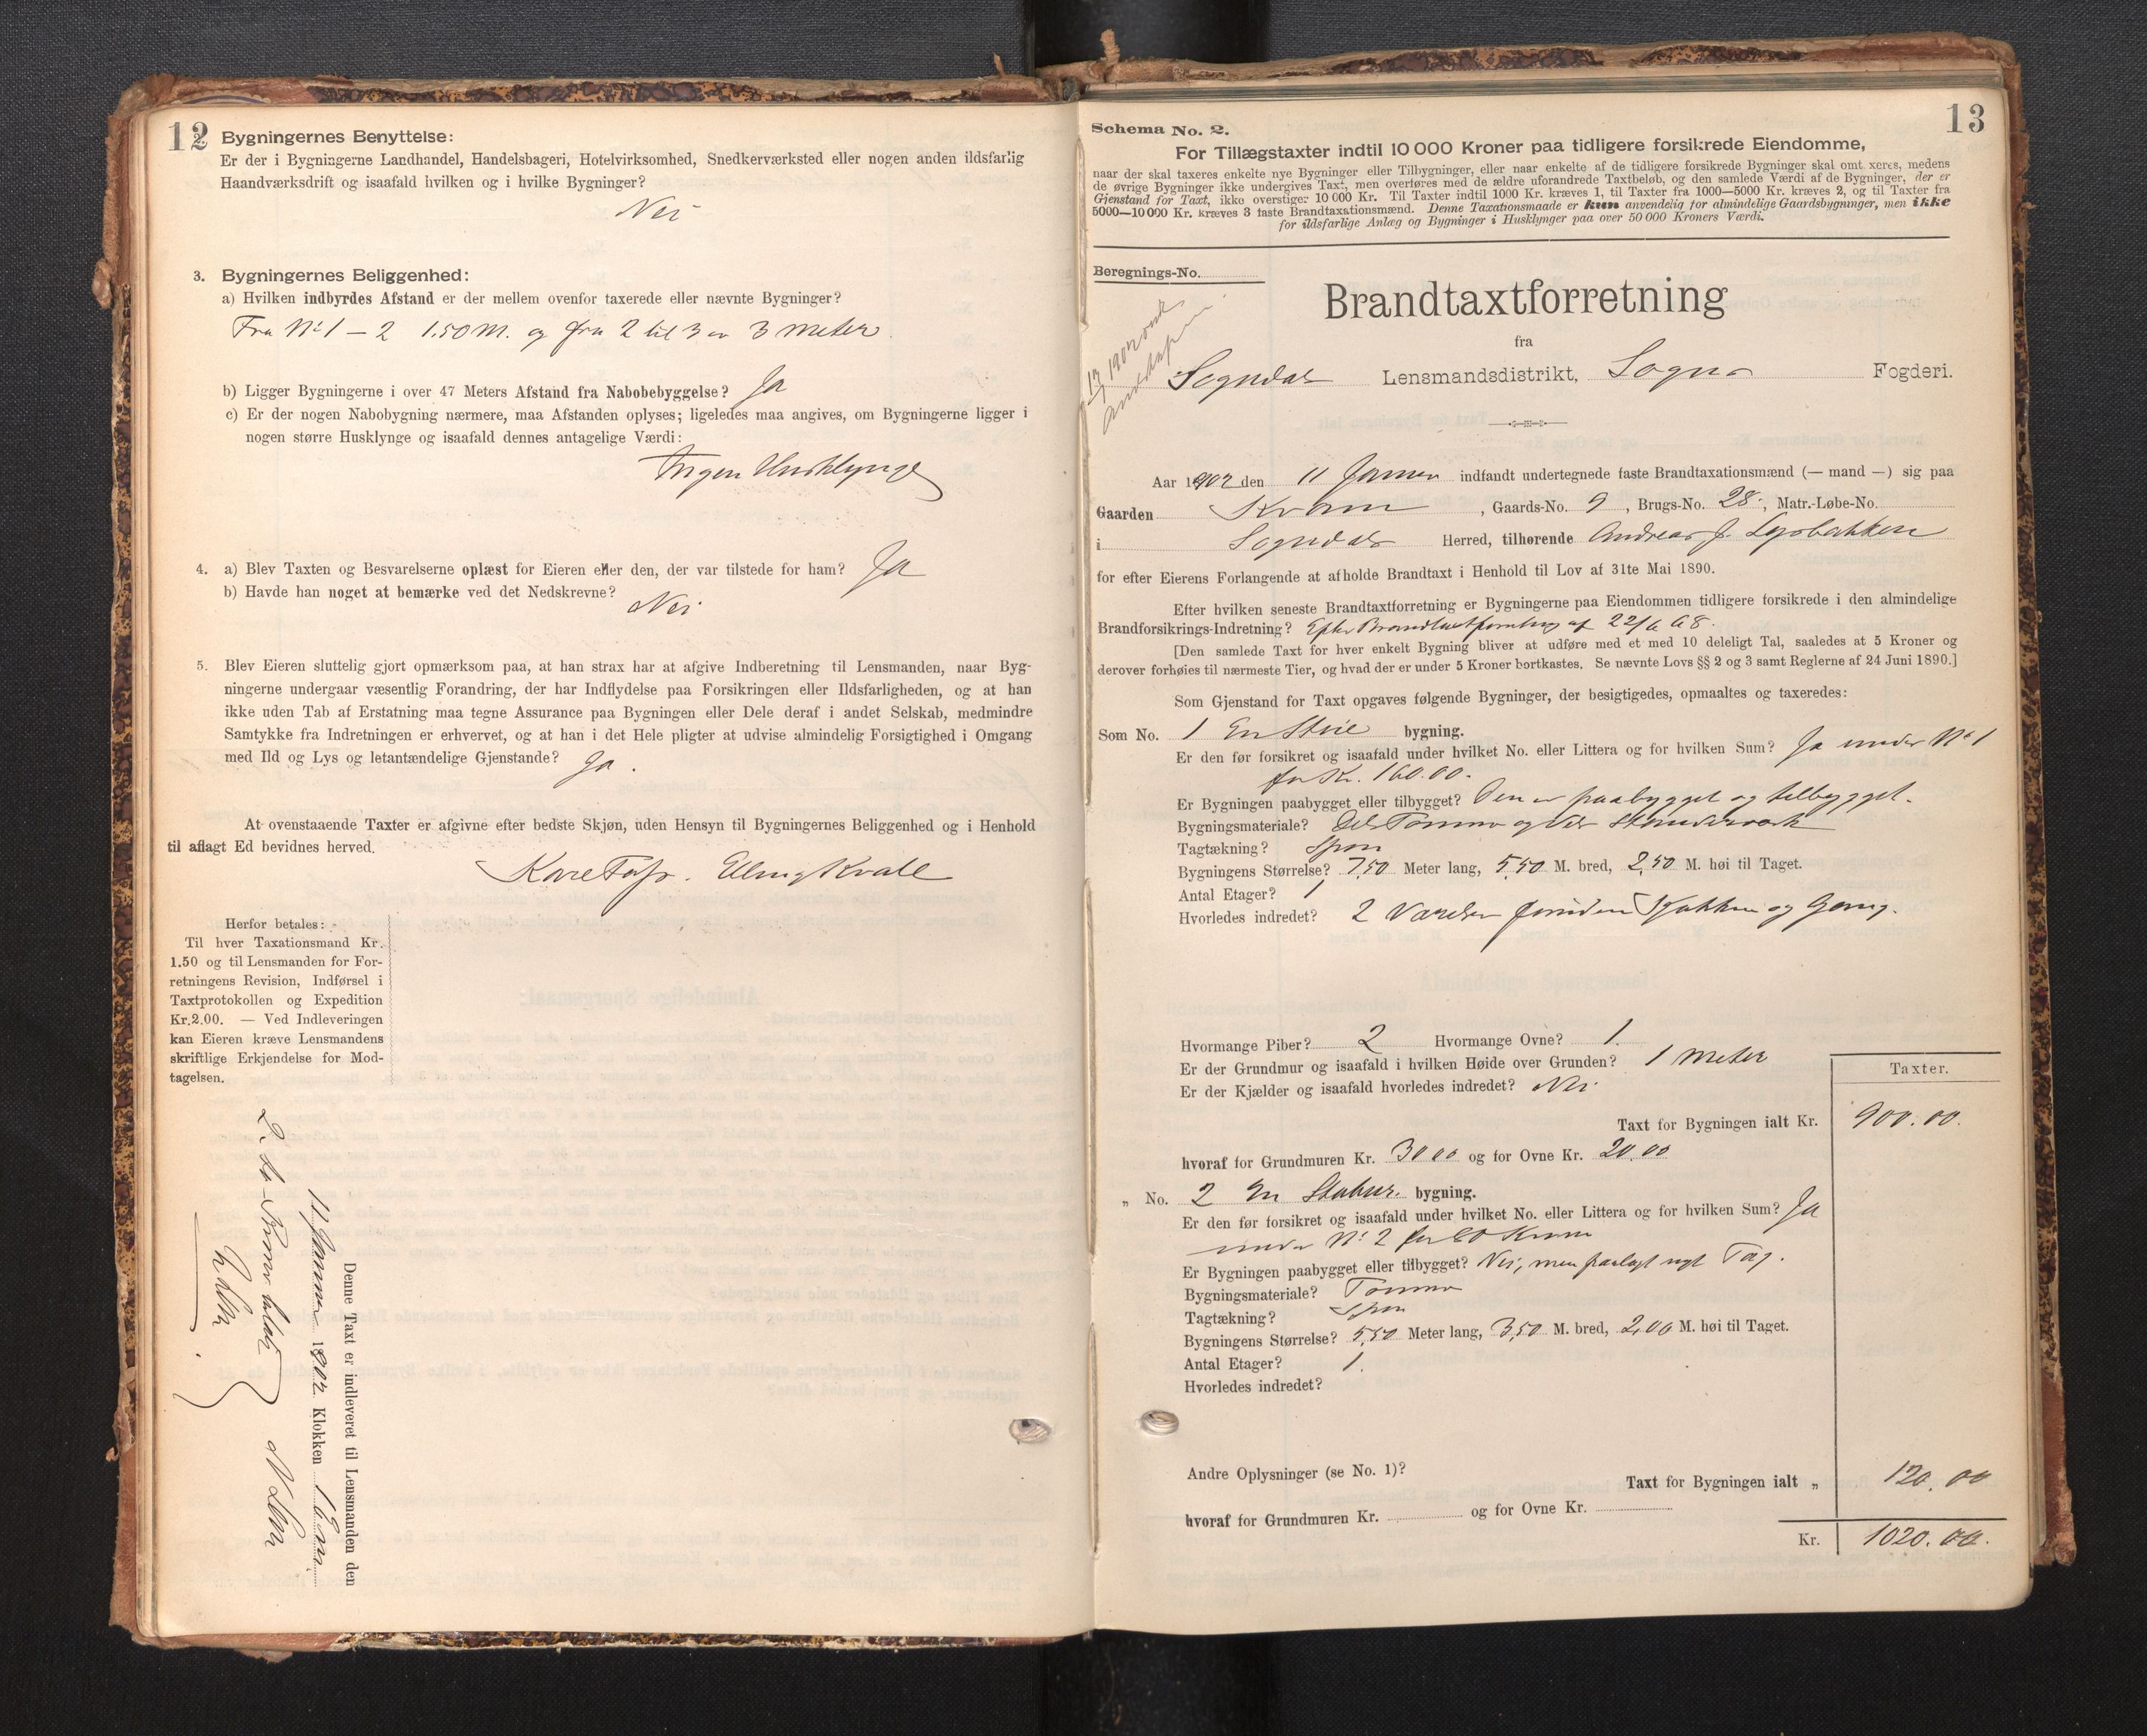 12
Bygningernes Benyttelse:
Er der i Bygningerne Landhandel, Handelsbageri, Hotelvirksomhed, Snedkerværksted eller nogen anden ildsfarlig
Haandværksdrift og isaafald hvilken og i hvilke Bygninger?
Nei
3. Bygningernes Beliggenhed:
a) Hvilken indbyrdes Afstand er der mellem ovenfor taxerede eller nævnte Bygninger?
Fra No 1 – 2 1.50 M. og fra 2 til 3 er 3 meter
b) Ligger Bygningerne i over 47 Meters Afstand fra Nabobebyggelse? Ja
c) Er der nogen Nabobygning nærmere, maa Afstanden oplyses; ligeledes maa angives, om Bygningerne ligger i
nogen større Husklynge og isaafald dennes antagelige Værdi:
Ingen Husklynge
4. a) Blev Taxten og Besvarelserne oplæst for Eieren eller den, der var tilstede for ham? Ja
b) Havde han noget at bemærke ved det Nedskrevne? Nei
5. Blev Eieren sluttelig gjort opmærksom paa, at han strax har at afgive Indberetning til Lensmanden, naar Byg-
ningerne undergaar væsentlig Forandring, der har Indflydelse paa Forsikringen eller Ildsfarligheden, og at han
ikke uden Tab af Erstatning maa tegne Assurance paa Bygningen eller Dele deraf i andet Selskab, medmindre
Samtykke fra Indretningen er erhvervet, og at han i det Hele pligter at udvise almindelig Forsigtighed i Omgang
med Ild og Lys og letantændelige Gjenstande? Ja.
At ovenstaaende Taxter er afgivne efter bedste Skjøn, uden Hensyn til Bygningernes Beliggenhed og i Henhold
til aflagt Ed bevidnes herved.
Elling Kvale
Herfor betales:
Til hver Taxationsmand Kr.
1.50 og til Lensmanden for For-
retningens Revision, Indførsel i
Taxtprotokollen og Expedition
Kr.2.00. — Ved Indleveringen
kan Eieren kræve Lensmandens
skriftlige Erkjendelse for Mod-
tagelsen.
Denne Taxt er indleveret til Lensmanden den
11 Januar 1902 Klokken 1
13
Schema No. 2.
For Tillægstaxter indtil 10 000 Kroner paa tidligere forsikrede Eiendomme,
naar der skal taxeres enkelte nye Bygninger eller Tilbygninger, eller naar enkelte af de tidligere forsikrede Bygninger skal omt xeres, medens
de øvrige Bygninger ikke undergives Taxt, men overføres med de ældre uforandrede Taxtbeløb, og den samlede Værdi af de Bygninger, der er
Gjenstand for Taxt, ikke overstiger 10 000 Kr. Til Taxter indtil 1000 Kr. kræves 1, til Taxter fra 1000—5000 Kr. kræves 2, og til Taxter fra
5000—10 000 Kr. kræves 3 faste Brandtaxationsmænd. Denne Taxationsmaade er kun anvendelig for almindelige Gaardsbygninger, men ikke
for ildsfarlige Anlæg og Bygninger i Husklynger paa over 50 000 Kroners Værdi.
Beregnings-No.
Brandtaxtforretning
fra
Sogndal Lensmandsdistrikt, Sogns Fogderi.
Aar 1902 den 11 Januar indfandt undertegnede faste Brandtaxationsmænd (— mand —) sig paa
Gaarden Kvam, Gaards-No. 9, Brugs-No. 28, Matr.-Løbe-No.
i Sogndal Herred, tilhørende Andreas J. Lysbakken
for efter Eierens Forlangende at afholde Brandtaxt i Henhold til Lov af 31te Mai 1890.
Efter hvilken seneste Brandtaxtforretning er Bygningerne paa Eiendommen tidligere forsikrede i den almindelige
Brandforsikrings-Indretning? Efter Brandtaxtforretning af 22/6 68.
[Den samlede Taxt for hver enkelt Bygning bliver at udføre med et med 10 deleligt Tal, saaledes at 5 Kroner og
derover forhøies til nærmeste Tier, og hvad der er under 5 Kroner bortkastes. Se nævnte Lovs §§ 2 og 3 samt Reglerne af 24 Juni 1890.]
Som Gjenstand for Taxt opgaves følgende Bygninger, der besigtigedes, opmaaltes og taxeredes:
Som No. 1 En Stue bygning.
Er den før forsikret og isaafald under hvilket No. eller Littera og for hvilken Sum? Ja under No 1
for Kr. 160.00.
Er Bygningen paabygget eller tilbygget? Den er paabygget og tilbygget.
Bygningsmateriale? Dels Tømmer og dels Standerværk
Tagtækning? Spon
Bygningens Størrelse? 7,50 Meter lang, 5,50 M. bred, 2,50 M. høi til Taget.
Antal Etager? 1
Hvorledes indredet? 2 Værelser foruden Kjøkken og Gang.
Hvormange Piber? 2 Hvormange Ovne? 1.
Er der Grundmur og isaafald i hvilken Høide over Grunden? 1 meter
Er der Kjælder og isaafald hvorledes indredet? Nei.
Taxter.
Taxt for Bygningen ialt Kr. 900.00.
hvoraf for Grundmuren Kr. 30 00 og for Ovne Kr. 20.00
„ No. 2 En Stabur. bygning.
Er den før forsikret og isaafald under hvilket No. eller Littera og for hvilken Sum? Ja
under No 2 for 80 Kroner
Er Bygningen paabygget eller tilbygget? Nei, men paalagt nyt Tag.
Bygningsmateriale? Tømmer
Tagtækning? Spon
Bygningens Størrelse? 5,50 Meter lang, 3,50 M. bred, 2,00 M. høi til Taget.
Antal Etager? 1.
Hvorledes indredet?
Andre Oplysninger (se No. 1)?
Taxt for Bygningen ialt „ 120.00
hvoraf for Grundmuren Kr. og for Ovne Kr.
Kr. 1020.00.